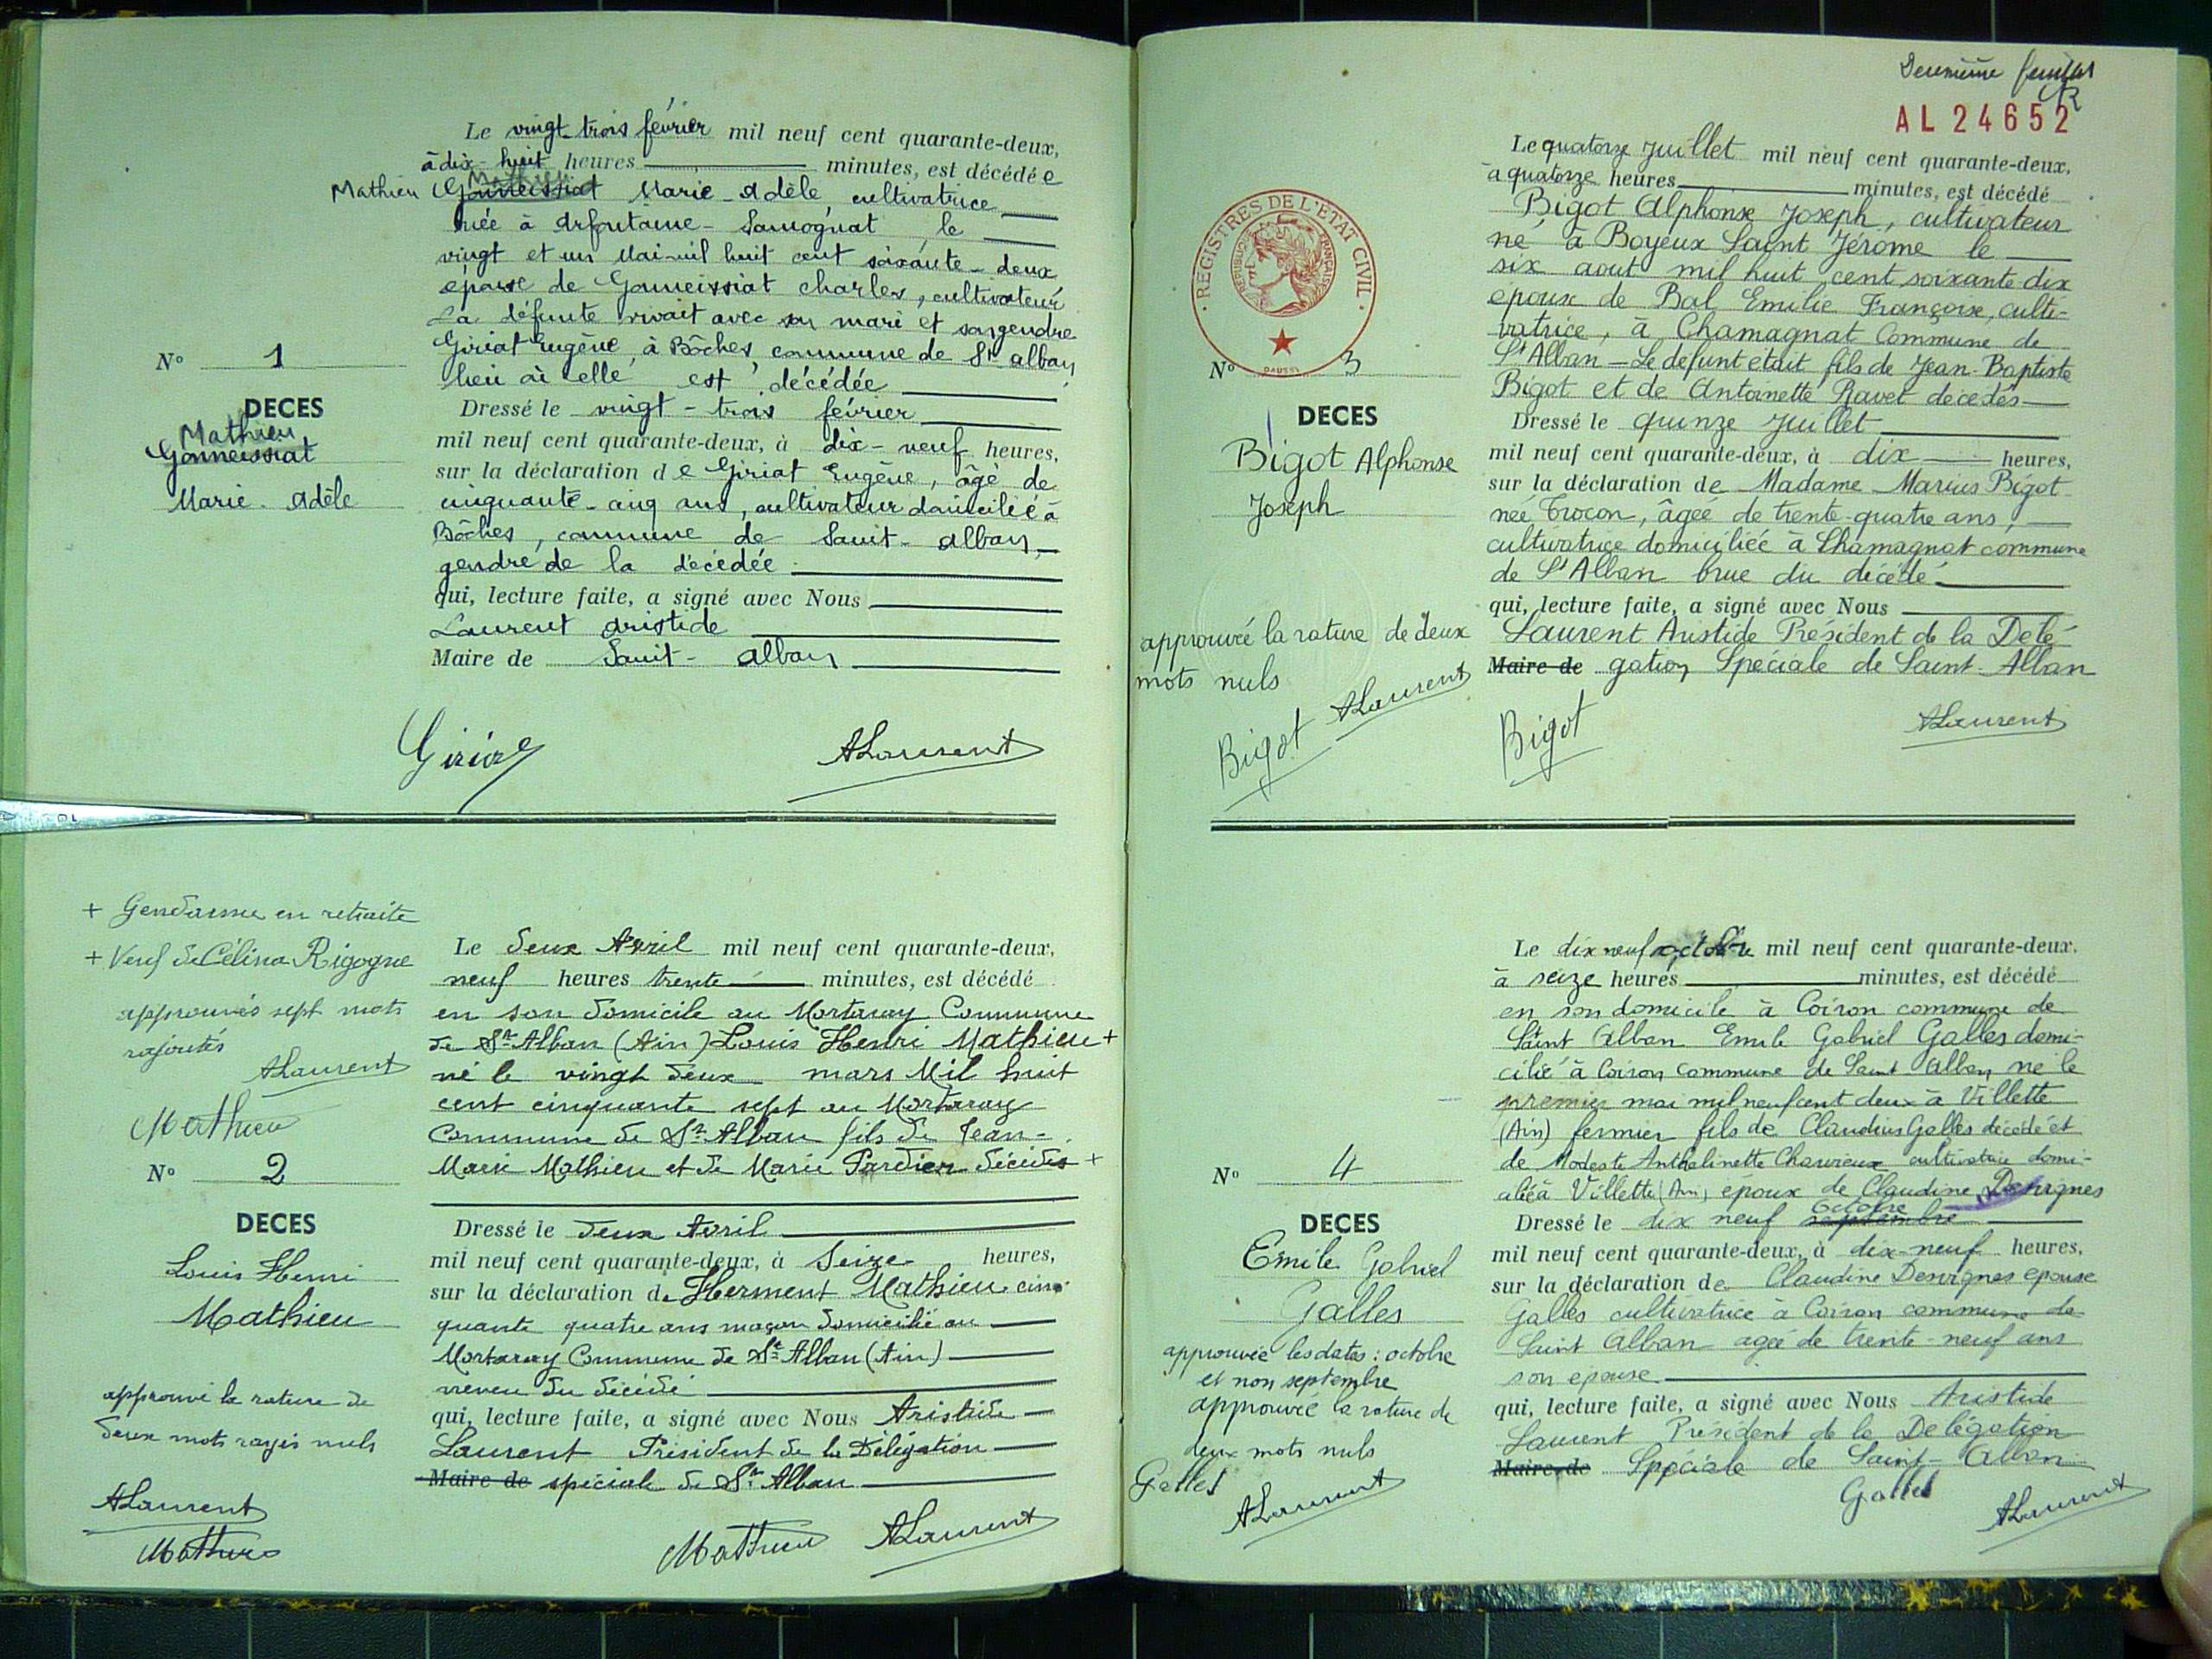 Le vingt-trois février mil neuf cent quarante-deux,
à dix-huit heures minutes, est décédée
Mathieu
Mathieu Gonneissiat Marie-Adèle, cultivatrice
née à Arfontaine-Samognat, le
vingt et un Mai mil huit cent soixante-deux
épouse de Gonneissiat Charles, cultivateur
La défunte vivait avec son mari et son gendre
Giriat Eugène, à Bôches commune de St Alban
lieu où elle est décédée
N° 1
DECES
Mathieu
Gonneissiat
Marie-Adèle
Dressé le vingt-trois février
mil neuf cent quarante-deux, à dix-neuf heures,
sur la déclaration de Giriat Eugène, âgé de
cinquante-cinq ans, cultivateur domicilié à
Bôches, commune de Saint-Alban
gendre de la décédée
qui, lecture faite, a signé avec Nous
Laurent Aristide
Maire de Saint-Alban
ALaurent
+ Gendarme en retraite
+ Veuf de Célina Rigogne
approuvés sept mots
rajoutés
ALaurent
Mathieu
N° 2
DECES
Louis Henri
Mathieu
approuvé la rature de
deux mots rayés nuls
ALaurent
Mathieu
Le deux Avril mil neuf cent quarante-deux,
neuf heures trente minutes, est décédé
en son domicile au Mortaray Commune
de St Alban (Ain) Louis Henri Mathieu +
né le vingt deux mars Mil huit
cent cinquante sept au Mortaray
Commune de St Alban fils de Jean-
Marie Mathieu et de Marie Pardier décédés +
Dressé le deux Avril
mil neuf cent quarante-deux, à Seize heures,
sur la déclaration de Herment Mathieu cin-
quante quatre ans maçon domicilié au
Mortaray Commune de St Alban (Ain)
neveu du décédé
qui, lecture faite, a signé avec Nous Aristide
Laurent Président de la Délégation
Maire de spéciale de St Alban
Mathieu ALaurent
Deuxième feuillet
AL 24652
REGISTRES DE L'ETAT CIVIL
REPUBLIQUE FRANÇAISE
N° 3
DECES
Bigot Alphonse
Joseph
approuvée la rature de deux
mots nuls
Bigot ALaurent
Le quatorze Juillet mil neuf cent quarante-deux,
à quatorze heures minutes, est décédé
Bigot Alphonse Joseph, cultivateur
né à Boyeux Saint Jérome le
six aout mil huit cent soixante dix
époux de Bal Emilie Françoise, culti-
vatrice, à Chamagnat Commune de
St Alban - Le défunt était fils de Jean-Baptiste
Bigot et de Antoinette Ravet décédés
Dressé le quinze Juillet
mil neuf cent quarante-deux, à dix heures,
sur la déclaration de Madame Marius Bigot
née Trocon, âgée de trente-quatre ans,
cultivatrice domiciliée à Chamagnat commune
de St Alban brue du décédé
qui, lecture faite, a signé avec Nous
Laurent Aristide Président de la Délé-
Maire de gation Spéciale de Saint-Alban
Bigot ALaurent
N° 4
DECES
Emile Gabriel
Galles
approuvée les dates : octobre
et non septembre
approuvée la rature de
deux mots nuls
Galles ALaurent
Le dix neuf octobre mil neuf cent quarante-deux,
à seize heures minutes, est décédé
en son domicile à Coiron commune de
Saint Alban Emile Gabriel Galles domi-
cilié à Coiron commune de Saint-Alban né le
premier mai mil neuf cent deux à Villette
(Ain) fermier fils de Claudius Galles décédé et
de Modeste Anthelinette Charvieux cultivatrice domi-
ciliée à Villette (Ain) époux de Claudine Desvignes
octobre
Dressé le dix neuf septembre
mil neuf cent quarante-deux, à dix-neuf heures,
sur la déclaration de Claudine Desvignes épouse
Galles cultivatrice à Coiron commune de
Saint Alban agée de trente-neuf ans
son épouse
qui, lecture faite, a signé avec Nous Aristide
Laurent Président de la Délégation
Maire de Spéciale de Saint-Alban
Galles ALaurent